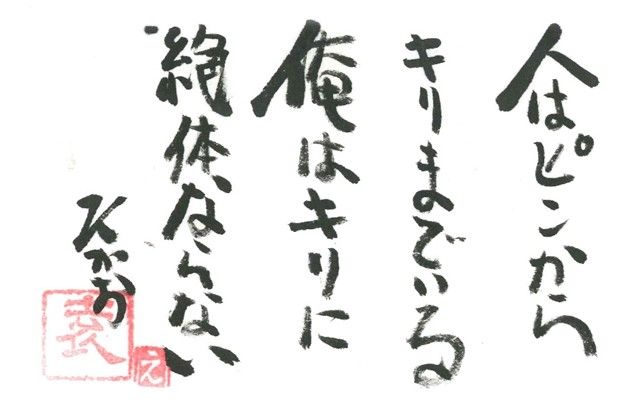 人はピンから
キリまでいる
俺はキリに
絶体ならない
え